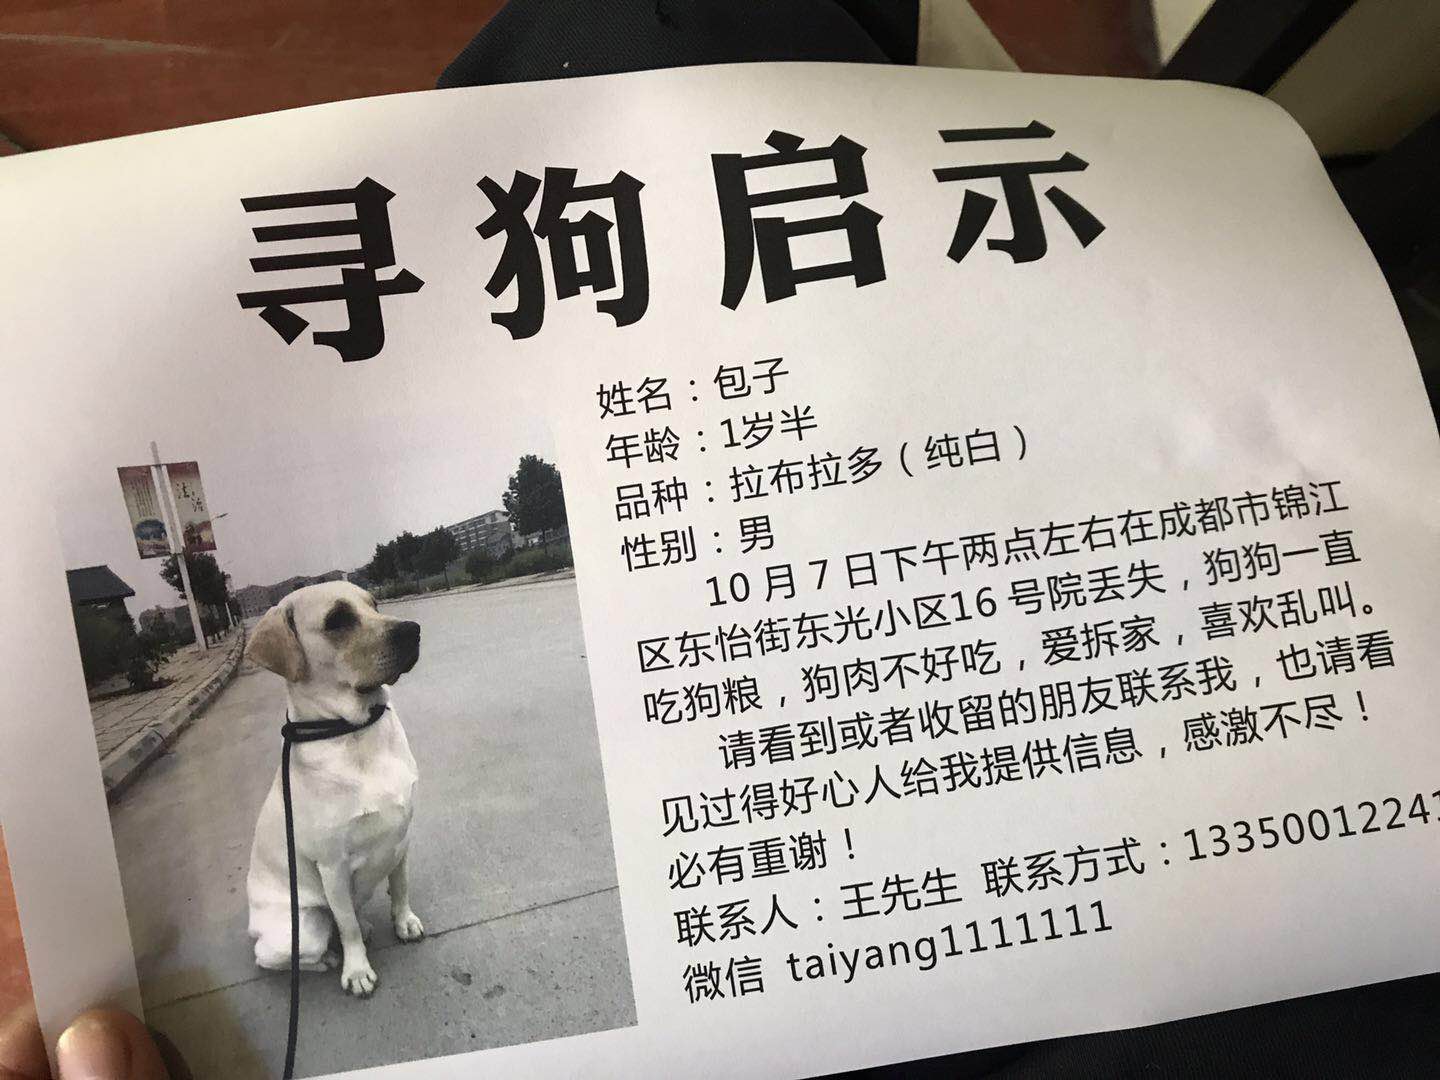 寻狗启示
姓名：包子
年龄：1岁半
品种：拉布拉多（纯白）
性别：男
10月7日下午两点左右在成都市锦江
区东怡街东光小区16号院丢失，狗狗一直
吃狗粮，狗肉不好吃，爱拆家，喜欢乱叫。
请看到或者收留的朋友联系我，也请看
见过得好心人给我提供信息，感激不尽！
必有重谢！
联系人：王先生 联系方式：13350012241
微信 taiyang1111111
法治